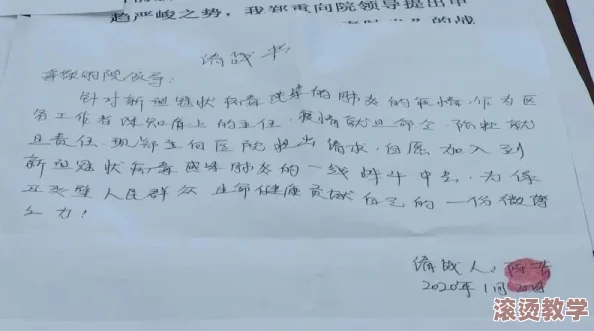 趋严峻之势，我郑重向院领导提出申
请战书
尊敬的院领导：
针对新型冠状病毒感染的肺炎的疫情，作为医
务工作者深知肩上的主任，疫情就是命令，防控就
是责任，现郑重向医院提出请求，自愿加入到
新型冠状病毒感染肺炎的一线战斗中去，为保
卫人民群众生命健康贡献自己的一份微薄
之力！
请战人：
2020年1月
滚烫教学